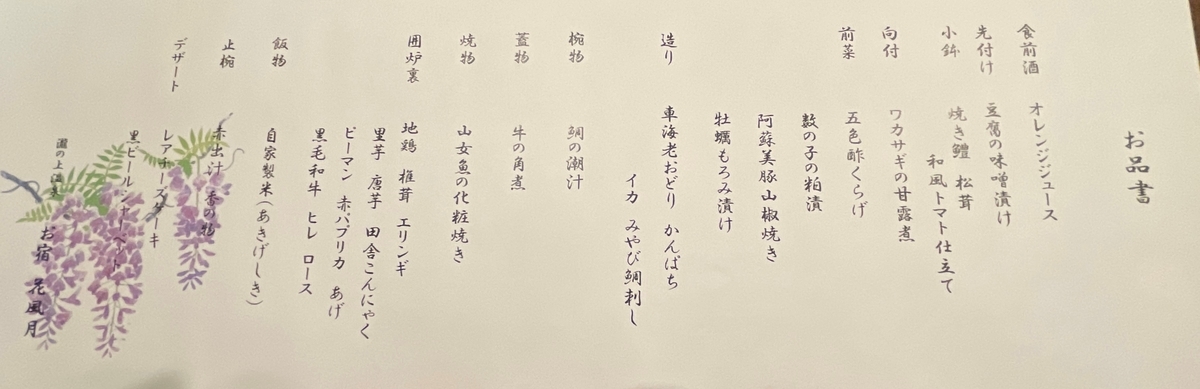 お品書
食前酒 オレンジジュース
先付け 豆腐の味噌漬け
小鉢 焼き鱧 松茸
和風トマト仕立て
向付 ワカサギの甘露煮
前菜 五色酢くらげ
数の子の粕漬
阿蘇美豚山椒焼き
牡蠣もろみ漬け
造り 車海老おどり かんぱち
イカ みやび鯛刺し
椀物 鯛の潮汁
蓋物 牛の角煮
焼物 山女魚の化粧焼き
囲炉裏 地鶏 椎茸 エリンギ
里芋 唐芋 田舎こんにゃく
ピーマン 赤パプリカ あげ
黒毛和牛 ヒレ ロース
飯物 自家製米(あきげしき)
止椀 赤出汁 香の物
デザート レアチーズケーキ
黒ビールシャーベット
お宿 花風月